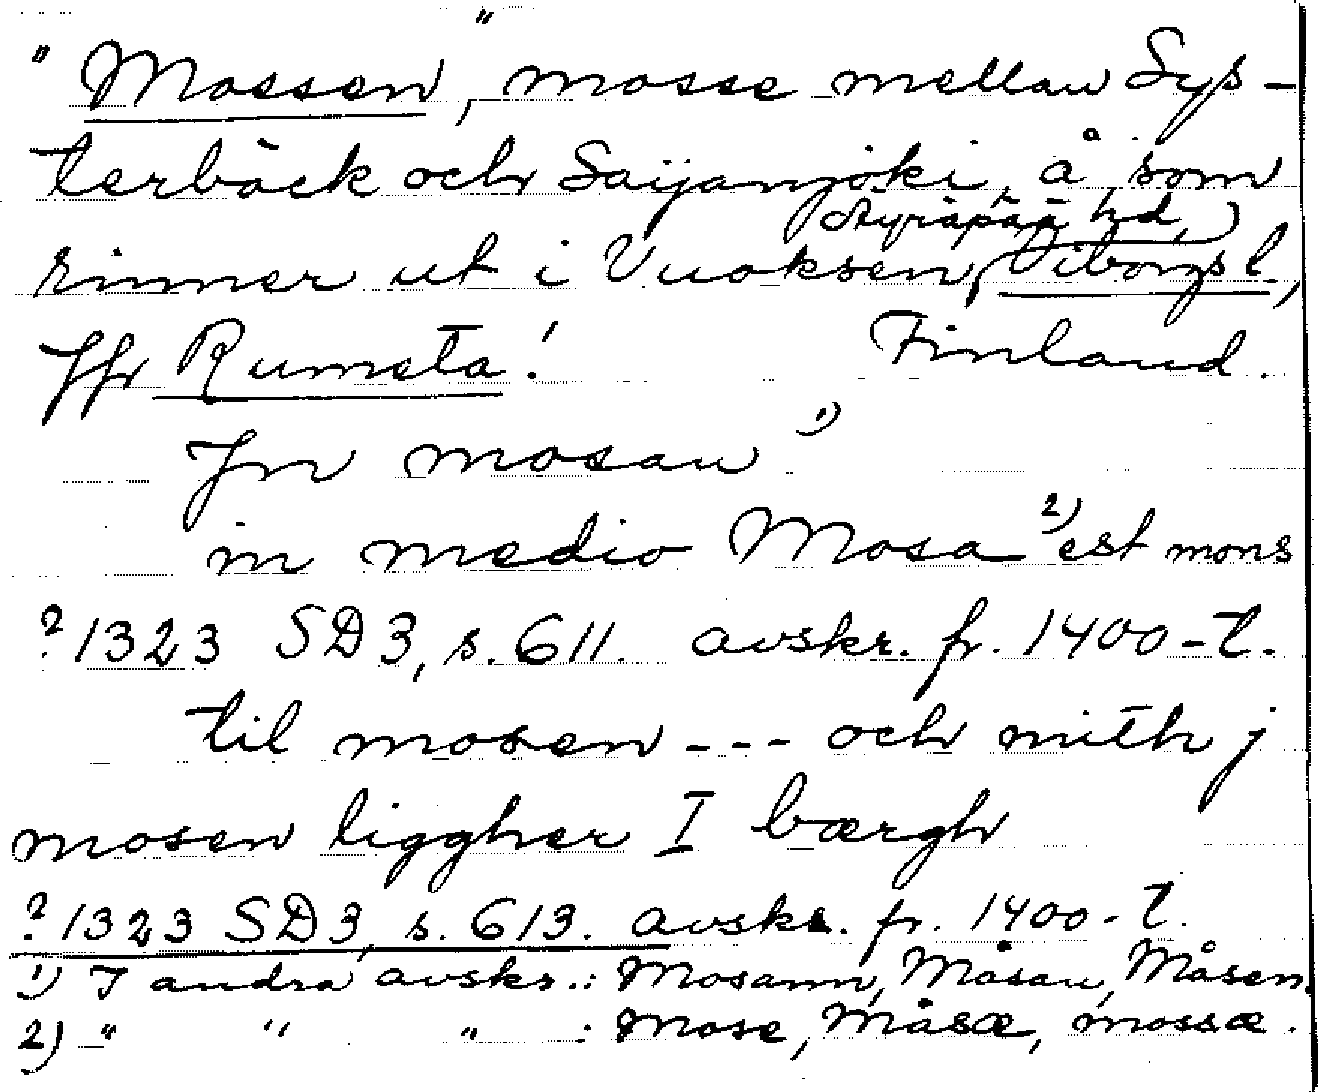 "Mossen", mosse mellan Sys-
terbäck och Saijanjoki, å som
Äyräpää hd,
rinner ut i Vuoksen, Viborgs l.,
Jfr Rumsta! Finland.
Jn mosan 1)
in medio Mosa 2) est mons
? 1323 SD3, s. 611. avskr. fr. 1400-t.
til mosen --- och mith j
mosen liggher I bærgh
? 1323 SD3, s. 613. avskr. fr. 1400-t.
1) I andra avskr.: Mosann, Måsan, Måsen.
2) " " " : Mose, Måsæ, mossæ.